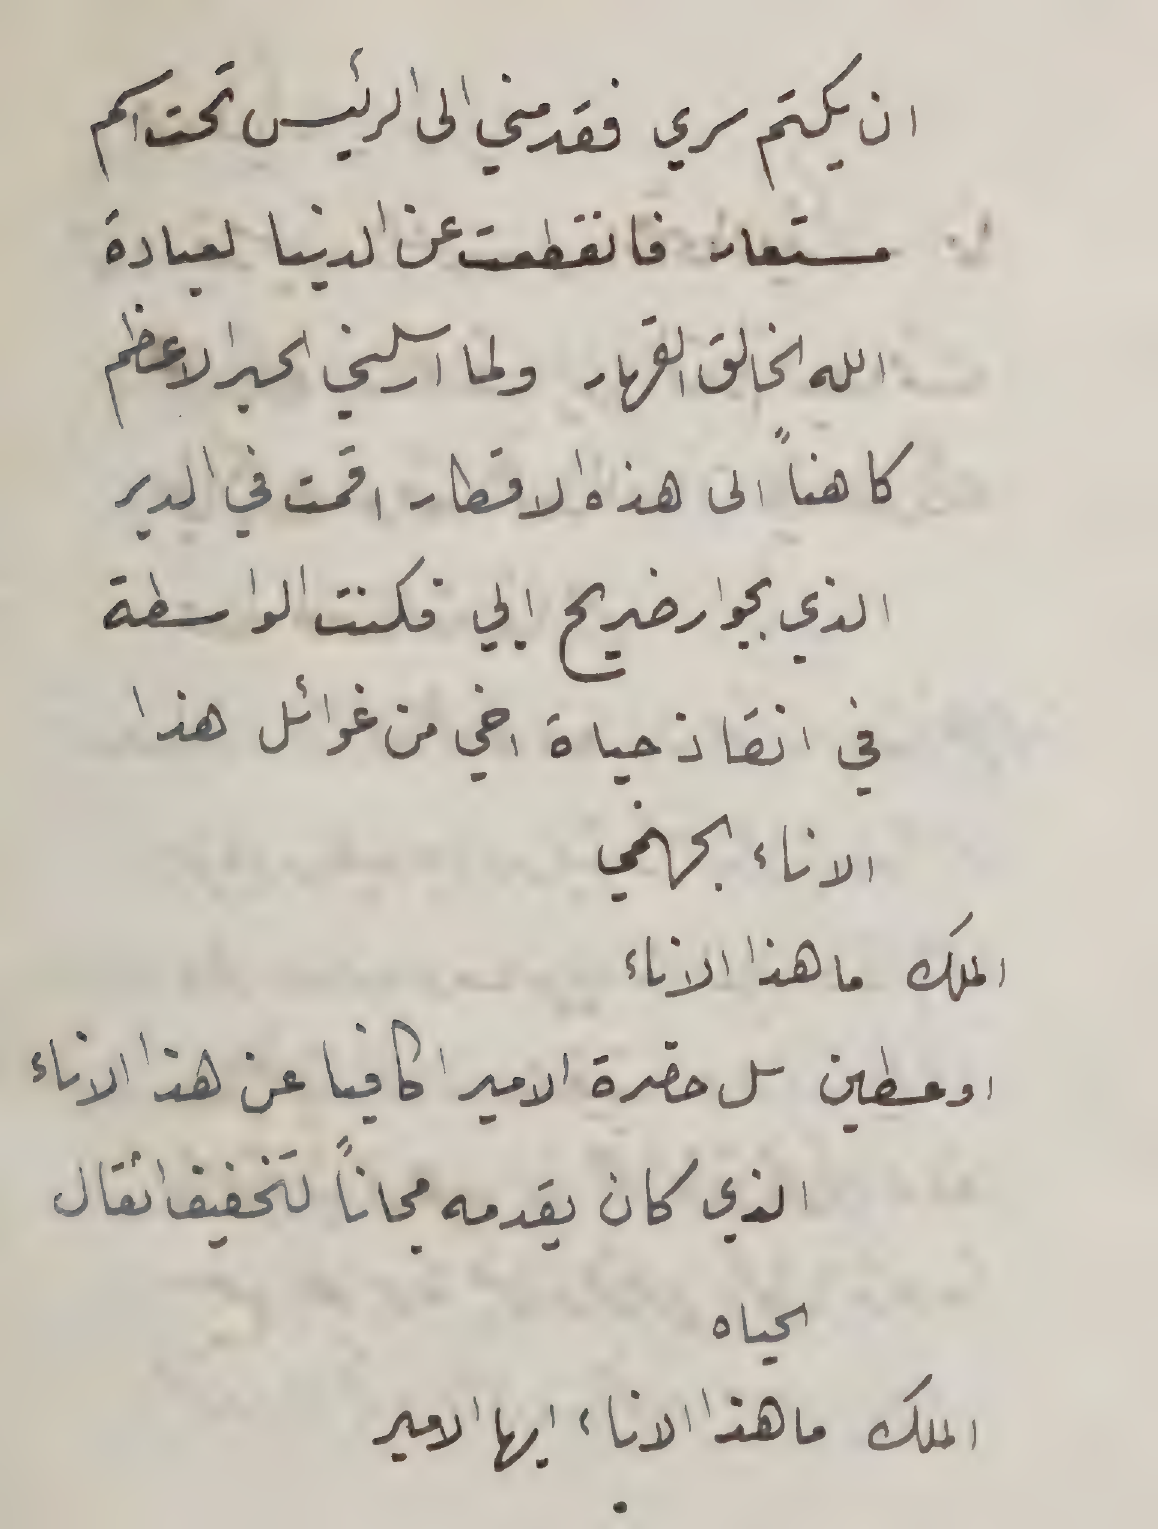 ان يكتم سري فقدمني الى الرئيس تحت اسم
مستعار فانقطعت عن الدنيا لعبادة
الله الخالق القهار ولما ارسلني الحبر الاعظم
كاهناً الى هذه الاقطار اقمت في الدير
الذي بجوار ضريح ابي فكنت الواسطة
في انقاذ حياة اخي من غوائل هذا
الاناء الجهنمي
الملك ما هذا الاناء
اوغسطين سل حضرة الامير اكافيا عن هذا الاناء
الذي كان يقدمه مجاناً لتخفيف اثقال
الحياه
الملك ما هذا الاناء ايها الامير